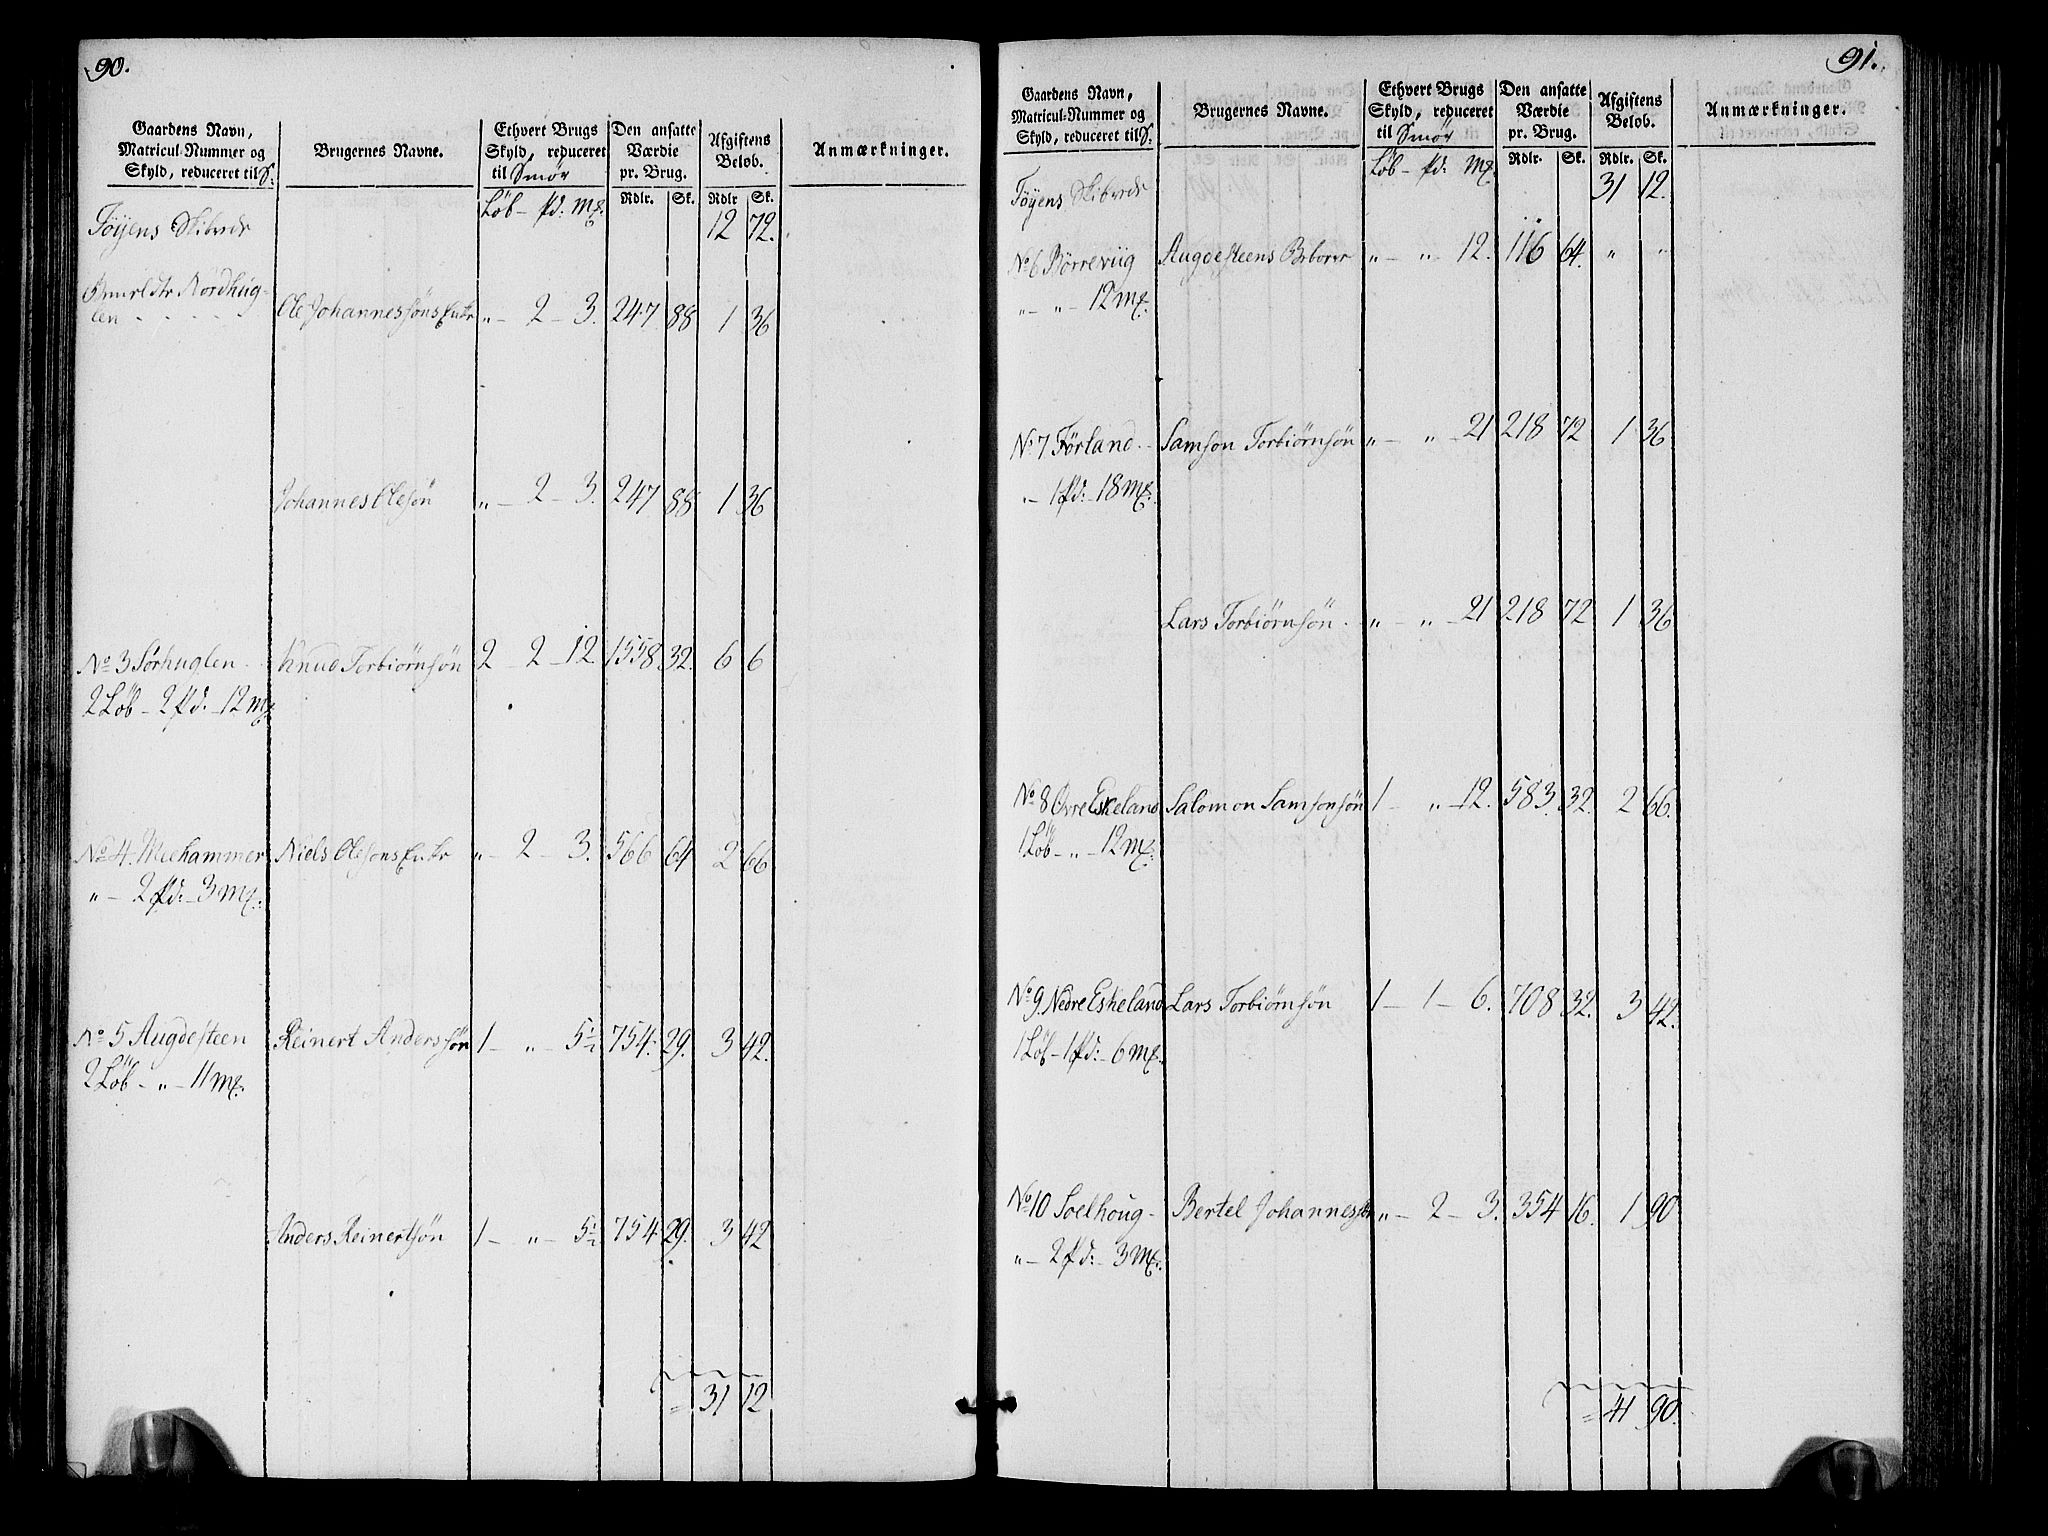 90.
Gaardens Navn, Matricul-Nummer og Skyld, reduceret til S: | Brugernes Navne. | Ethvert Brugs Skyld, reduceret til Smør | Den ansatte Værdie pr. Brug. | Afgiftens Beløb. | Anmærkninger.
Løb – pd: mk. | Rdlr. Sk. | Rdlr Sk.
Føyens Skibrede 12 72.
Nordhug-
len Ole Johannessøns Enke „ – 2 – 3. 247 88 1 36
Johannes Olesøn „ – 2 – 3. 247 88 1 36
No 3 Sørhuglen Knud Torbiørnsøn 2 – 2 – 12 1558 32. 6 6
2 Løb – 2 pd: – 12 mk
No 4. Meehammer Niels Olesøns Enke „ – 2 – 3. 566 64 2 66
„ – 2 pd: – 3 mk.
No 5 Augdesteen Reinert Anderssøn 1 – „ – 5½ 754. 29. 3 42.
2 Løb – „ – 11 mk.
Anders Reinertsøn 1 – „ – 5½ 754. 29. 3 42
= 31 12
91.
Gaardens Navn, Matricul-Nummer og Skyld, reduceret til S: | Brugernes Navne. | Ethvert Brugs Skyld, reduceret til Smør | Den ansatte Værdie pr. Brug. | Afgiftens Beløb. | Anmærkninger.
Løb – pd: mk | Rdlr. Sk. | Rdlr. Sk.
Føyens Skibrede 31 12.
No 6 Børreviig Augdesteens Beboere „ – „ – 12. 116 64. „ „
„ – „ – 12 mk.
No 7 Førland Samson Torbiørnsøn „ – „ – 21 218 72 1 36
„ – 1 pd: – 18 mk.
Lars Torbiørnsøn „ – „ – 21 218 72 1 36
No 8 Øvre Eskeland Salomon Samsonsøn 1 – „ – 12. 583. 32. 2 66.
1 Løb – „ – 12 mk.
No 9. Nedre Eskeland Lars Torbiørnsøn 1 – 1 – 6. 708 32. 3 42.
1 Løb – 1 pd: – 6 mk.
No 10 Soelhoug – Bertel Johannessøn „ – 2 – 3. 354 16. 1 90
„ – 2 pd: – 3 mk.
= 41 90.